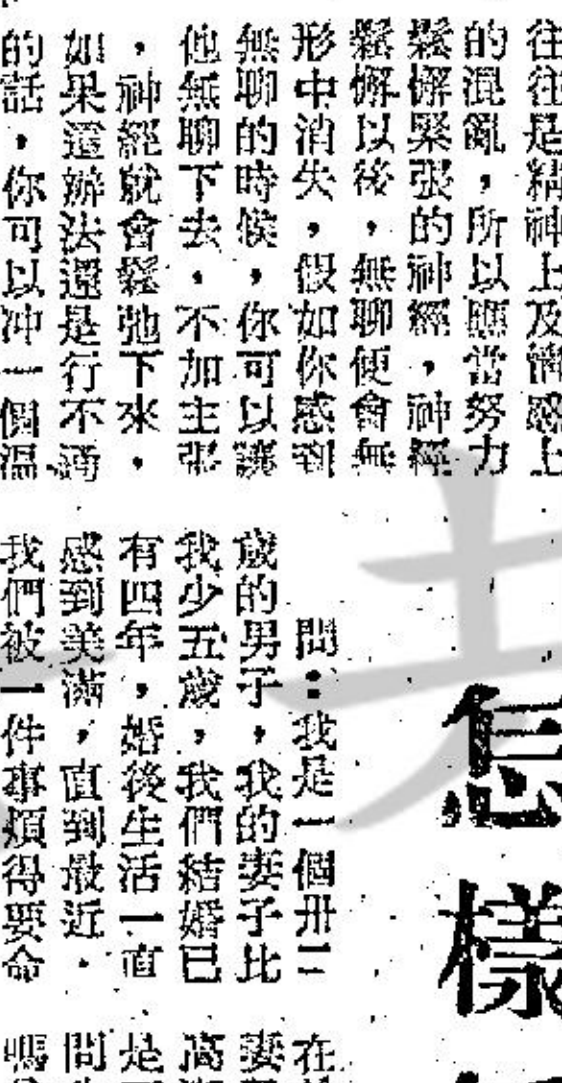 往往是精神上及情感上
的混亂，所以應當努力
鬆懈緊張的神經，神經
鬆懈以後，無聊便會無
形中消失，假如你感到
無聊的時候，你可以讓
他無聊下去，不加主張
，神經就會鬆弛下來，
如果這辦法還是行不通
的話，你可以冲一個溫
怎樣
問：我是一個卅二
歲的男子，我的妻子比
我少五歲，我們結婚已
有四年，婚後生活一直
感到美滿，直到最近，
我們被一件事煩得要命
在
妻
高
是
問
嗎